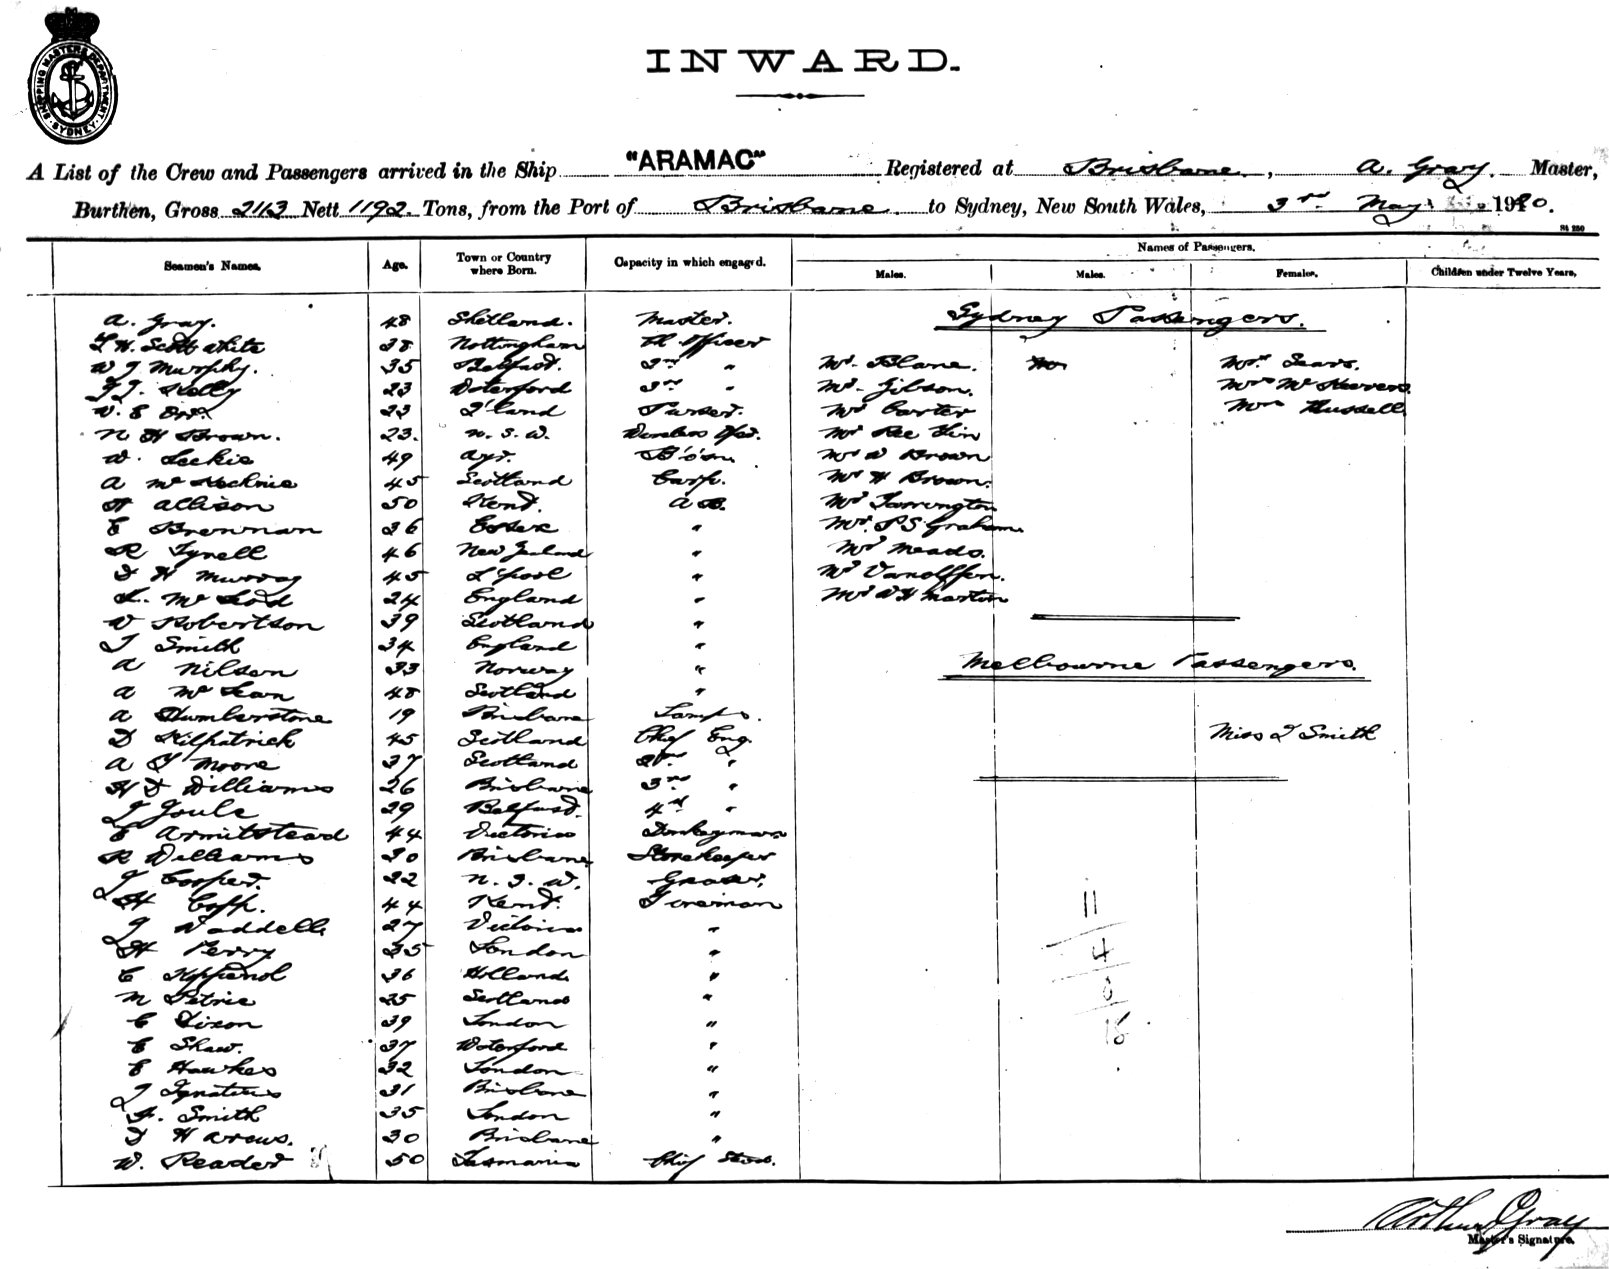 SHIPPING MASTERS DEPARTMENT · SYDNEY ·
INWARD.
A List of the Crew and Passengers arrived in the Ship "ARAMAC" Registered at Brisbane, A. Gray. Master,
Burthen, Gross 2113 Nett 1192 Tons, from the Port of Brisbane to Sydney, New South Wales, 3rd May 1920.
St 250
Seamen's Names. Age. Town or Country where Born. Capacity in which engaged. Names of Passengers.
Males. Males. Females. Children under Twelve Years.
A. Gray. 48 Shetland. Master. Sydney Passengers.
38 Nottingham Ch Officer
W J Murphy. 35 Belfast. 2nd " Mr. Blane. Mr Mrs Sears.
Kelly 23 Waterford 3rd " Mr. Gibson. Mrs
23 Purser. Mr Carter Mrs Russell
N H Brown. 23. N. S. W. Wireless Opr. Mr
W. Leckie 49 Ayr. Bosn Mr W Brown
A Mc 45 Scotland Carp. Mr H Brown.
H Allison 50 Kent. A B. Mr Tarrington
C Brennan 36 Essex " Mr. P S Graham
R Tynell 46 New Zealand " Mr Meads.
D H Murray 45 L'pool " Mr
L. Mc Leod 24 England " Mr W H Martin
W Robertson 39 Scotland "
T Smith 34 England "
A Nilsen 33 Norway " Melbourne Passengers.
A Mc Lean 48 Scotland "
A Humberstone 19 Brisbane Lamps.
D Kilpatrick 45 Scotland Chief Eng. Miss I Smith
A Moore 37 Scotland 2nd "
H D Williams 26 Brisbane 3rd "
J Joule 29 Belfast. 4th "
E Armitstead 44 Victoria Donkeyman
R Williams 30 Brisbane Storekeeper
J Cooper. 22 N. S. W. Greaser.
H Copp. 44 Kent. Fireman
11
J Waddell 27 Victoria "
H Perry 35 London "
4
C 36 Holland "
M Petrie 25 Scotland "
C Dixon 39 London "
E Shaw. 37 Waterford "
E Hawkes 32 London "
J Ignatius 31 Brisbane "
F. Smith 35 London "
D 30 Brisbane "
W. Reader 50 Tasmania Chief Stwd.
Arthur Gray
Master's Signature.